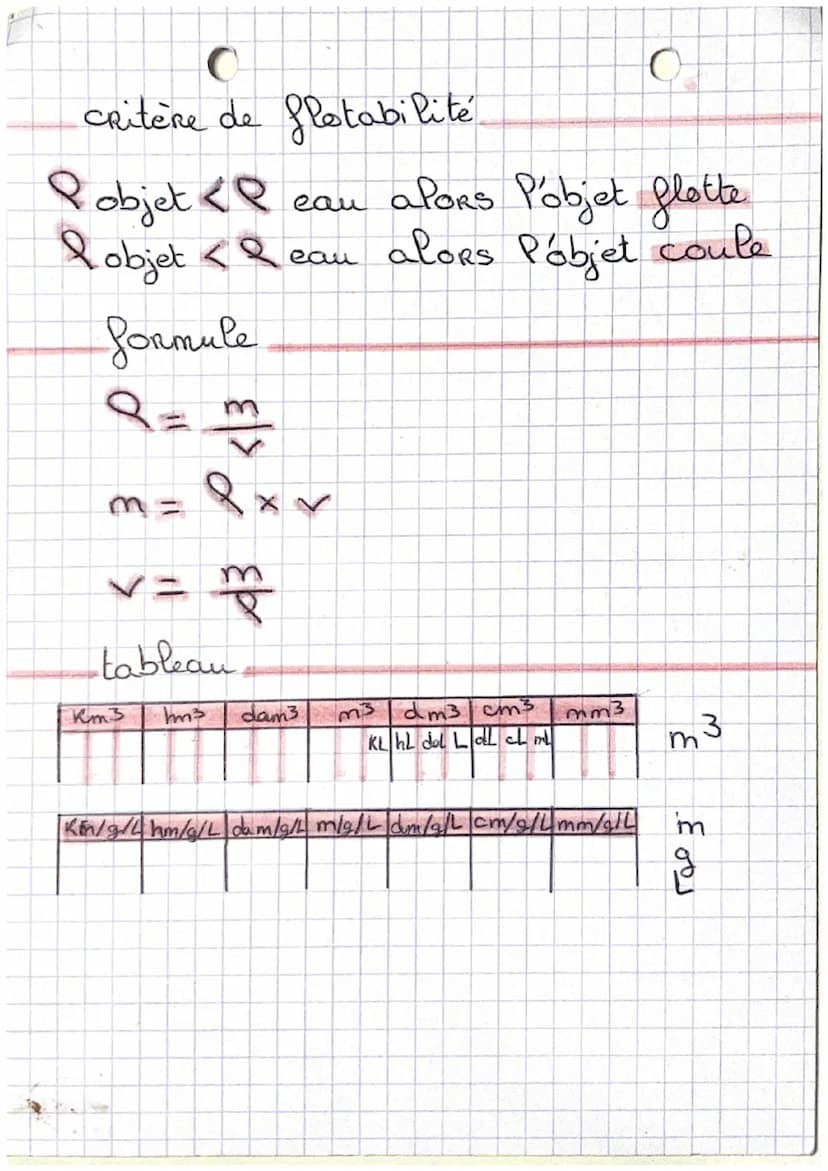 critère de flotabilité
ρ objet < ρ eau alors l'objet flotte
ρ objet < ρ eau alors l'objet coule
formule
ρ = m/v
m = ρ x v
v = m/ρ
tableau
Km³ hm³ dam³ m³ dm³ cm³ mm³ m³
KL hL daL L dL cL mL
Km/g/L hm/g/L dam/g/L m/g/L dm/g/L cm/g/L mm/g/L m
g
L